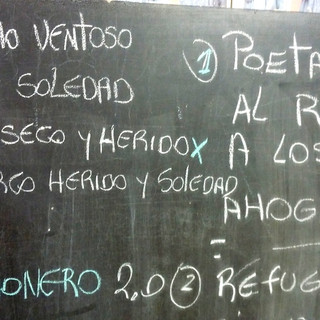 NO VENTOSO
SOLEDAD
SECO Y HERIDO X
RGO HERIDO Y SOLEDAD
ONERO 2,0
1 POETA
AL R
A LOS
AHOG
2 REFUG